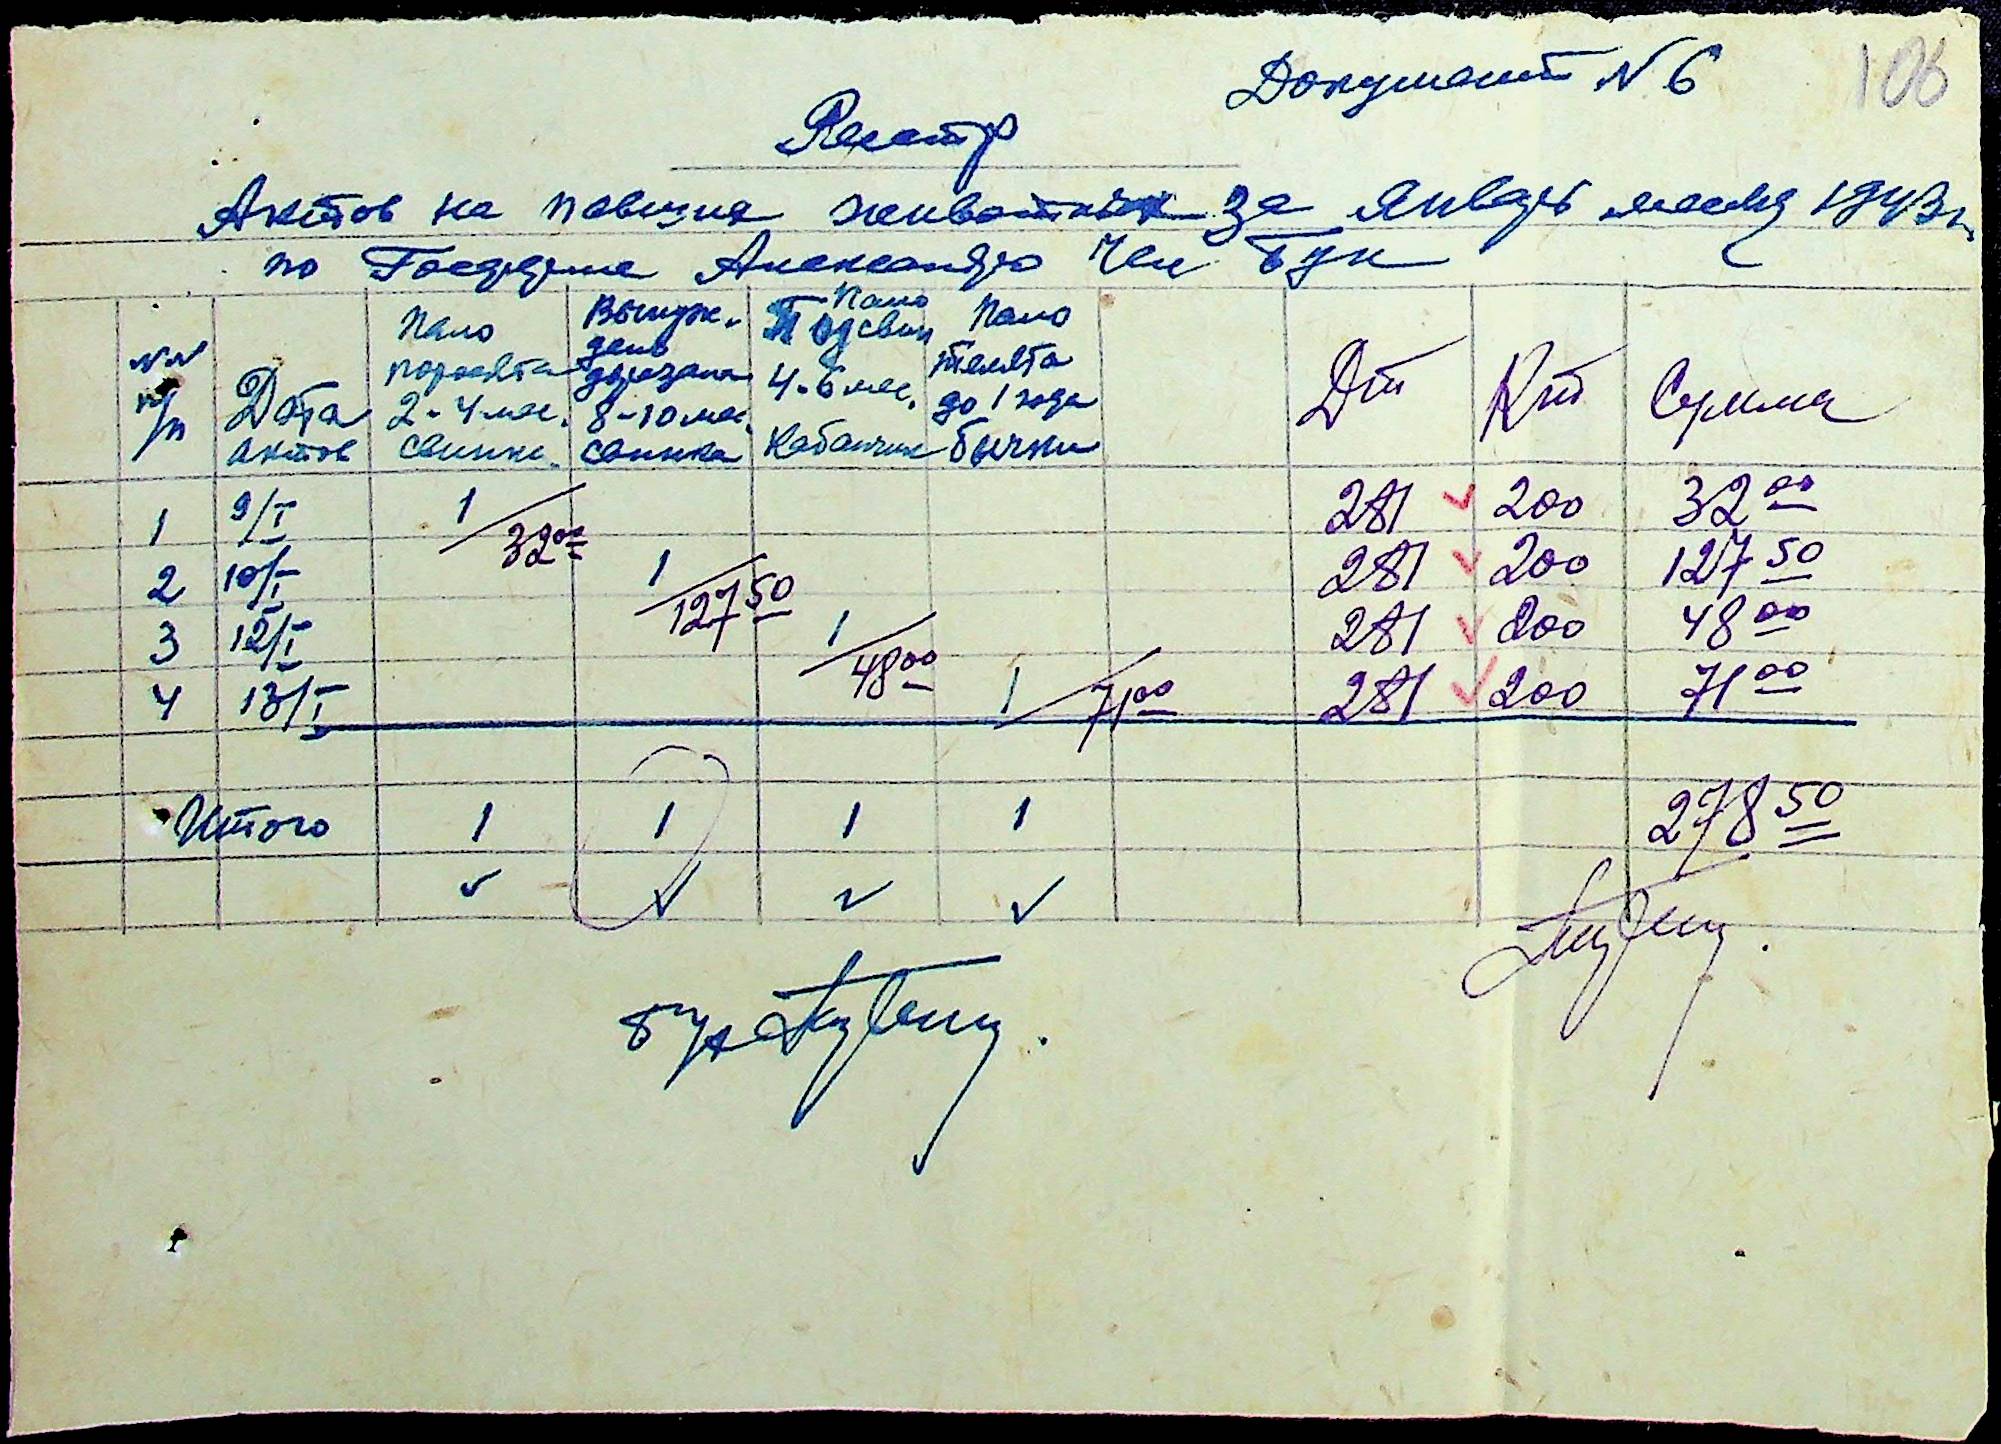 106
Документ N 6
Реестр
Актов на павшие животных за январь месяц 1943 г.
по Госдурме Александро Чел Бук
NN п/п | Дата актов | Пало поросята 2-4 мес. свинк. | Вынужден дорезана 8-10 мес. свинка | Пало Подсвин 4-6 мес. Кабанчик | Пало телята до 1 года бычки | Дт | Кт | Сумма
1 9/I 1/32 00 281 200 32 00
2 10/I 1/127 50 281 200 127 50
3 12/I 1/48 00 281 200 48 00
4 13/I 1/71 00 281 200 71 00
Итого 1 1 1 1 278 50
Бух